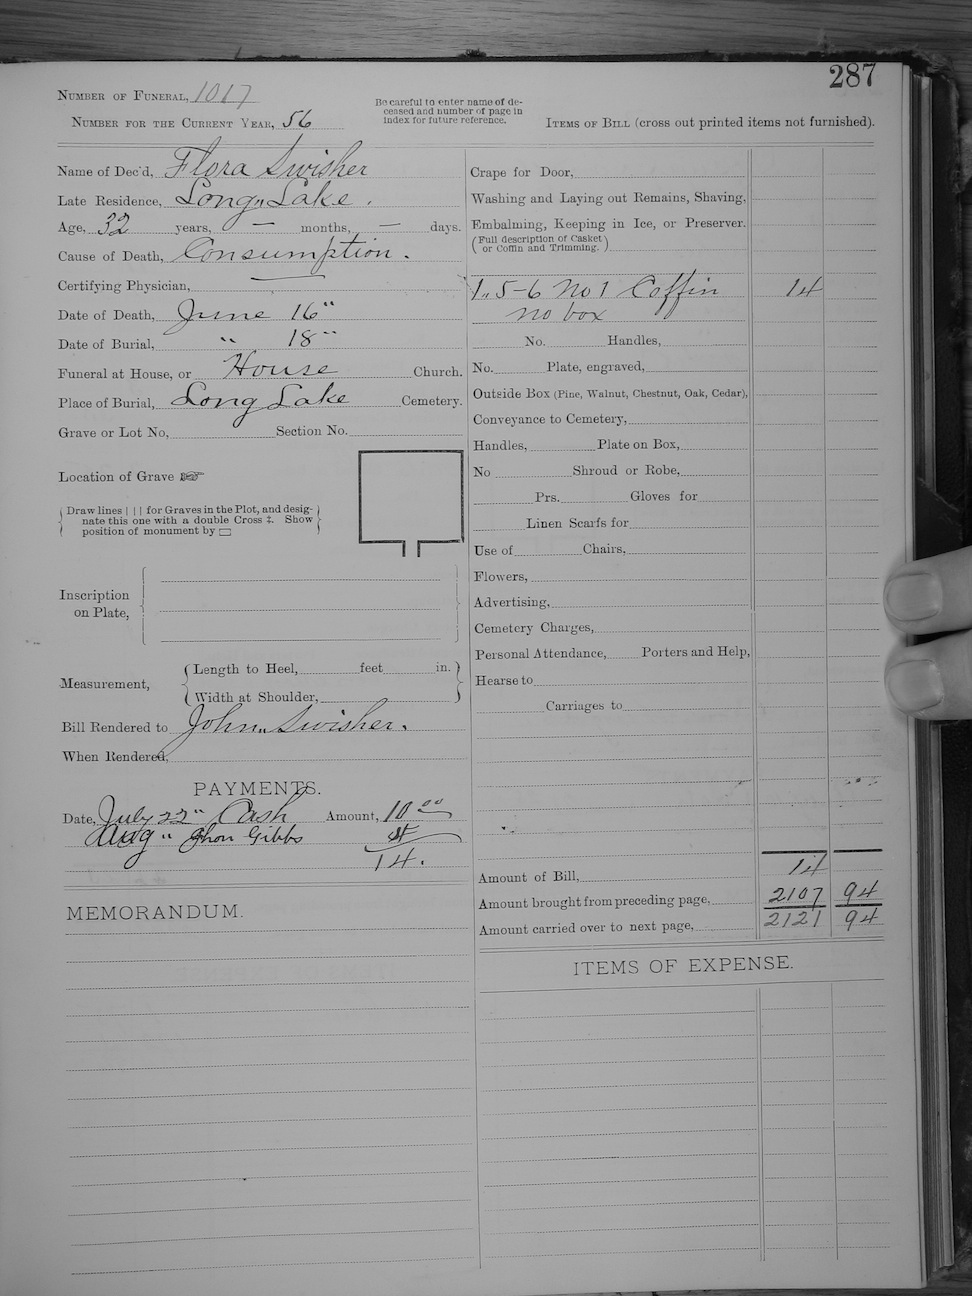 287
NUMBER OF FUNERAL, 1017
NUMBER FOR THE CURRENT YEAR, 56
Be careful to enter name of de-
ceased and number of page in
index for future reference.
ITEMS OF BILL (cross out printed items not furnished).
Name of Dec'd, Flora Swisher
Late Residence, Long Lake.
Age, 32 years, — months, — days.
Cause of Death, Consumption.
Certifying Physician, —
Date of Death, June 16"
Date of Burial, " 18"
Funeral at House, or House Church.
Place of Burial, Long Lake Cemetery.
Grave or Lot No, Section No.
Location of Grave ☞
Draw lines | | | for Graves in the Plot, and desig-
nate this one with a double Cross ‡. Show
position of monument by ▭
Inscription
on Plate,
Measurement,
Length to Heel, feet in.
Width at Shoulder,
Bill Rendered to John Swisher.
When Rendered,
PAYMENTS.
Date, July 22" Cash Amount, 10 00
Aug " Jhon Gibbs 4
14.
MEMORANDUM.
Crape for Door,
Washing and Laying out Remains, Shaving,
Embalming, Keeping in Ice, or Preserver.
(Full description of Casket
or Coffin and Trimming.)
1" 5-6 No 1 Coffin 14
no box
No. Handles,
No. Plate, engraved,
Outside Box (Pine, Walnut, Chestnut, Oak, Cedar),
Conveyance to Cemetery,
Handles, Plate on Box,
No Shroud or Robe,
Prs. Gloves for
Linen Scarfs for
Use of Chairs,
Flowers,
Advertising,
Cemetery Charges,
Personal Attendance, Porters and Help,
Hearse to
Carriages to
Amount of Bill, 14
Amount brought from preceding page, 2107 94
Amount carried over to next page, 2121 94
ITEMS OF EXPENSE.